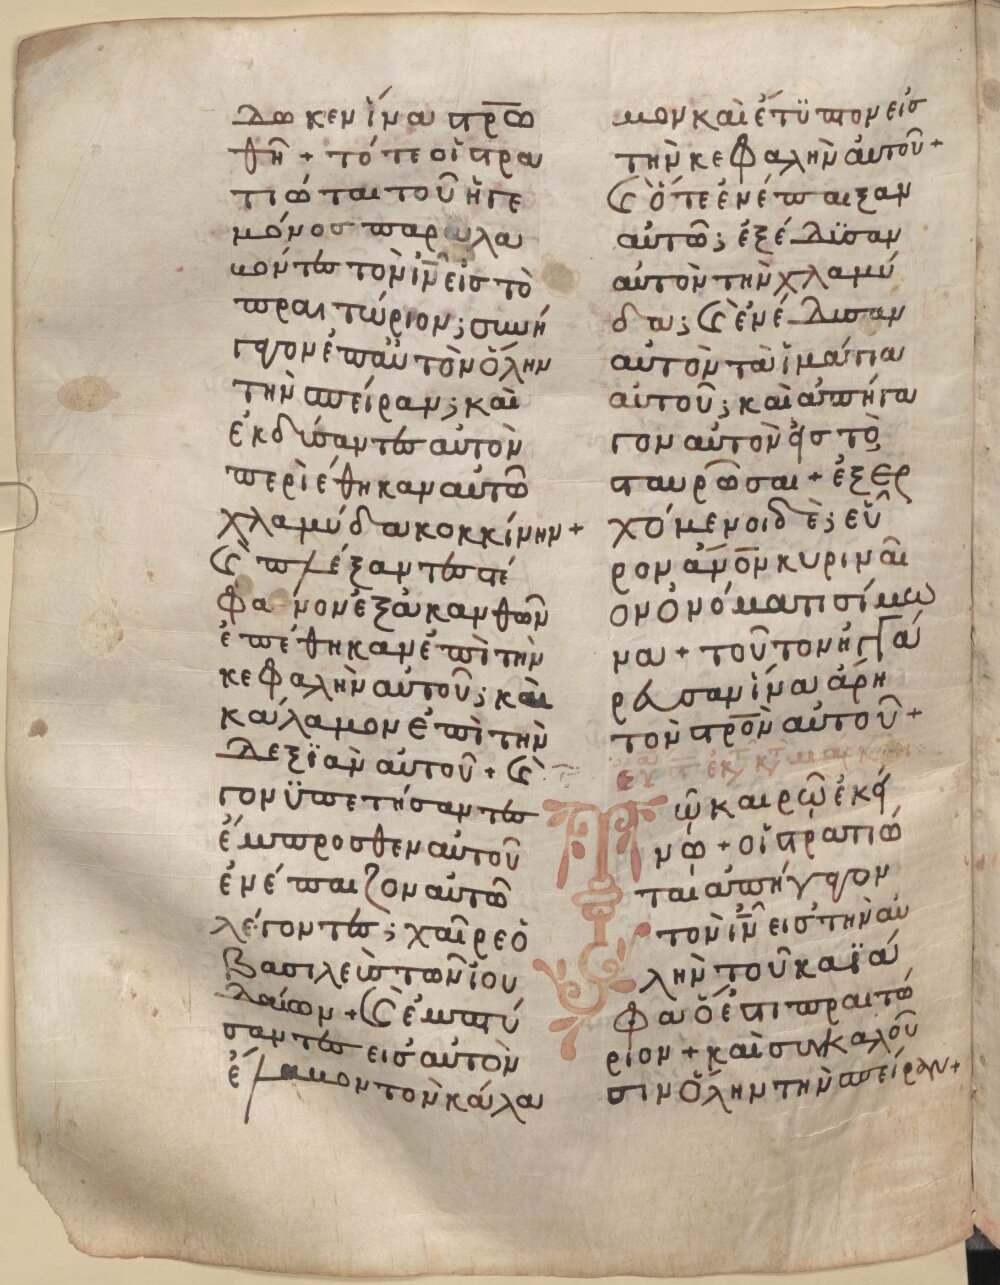 δωκεν ἵνα στ̅ρω
θῆ + τότε οἱ στρα
τιώται τοῦ ἡγε
μόνος παραλα
κόντες τὸν ι̅ν̅ εἰς τὸ
πραιτώριον; συνή
γαγον ἐπ αὐτὸν ὅλην
τὴν σπείραν; καὶ
ἐκδύσαντες αὐτὸν
περιέθηκαν αὐτῶ
χλαμύδα κοκκίνην +
Ϛ πλέξαντες στέ
φανον ἐξ ἀκανθῶν
ἐπέθηκαν ἐπὶ τὴν
κεφαλὴν αὐτοῦ; καὶ
κάλαμον ἐπὶ τὴν
δεξϊὰν αὐτοῦ + Ϛ
γονϋπετήσαντες
ἔμπροσθεν αὐτοῦ
ἐνέπαιζον αὐτῶ
λέγοντες; χαῖρε ὁ
βασιλεὺς τῶν ἰου
δαίων + Ϛ ἐμπτύ
σαντες εἰς αὐτὸν
ἔλακον τὸν κάλα
μον καὶ ἔτϋπον εἰς
τὴν κεφαλὴν αὐτοῦ +
Ϛ ὅτε ἐνέπαιξαν
αὐτῶ; ἐξέδϊσαν
αὐτὸν τὴν χλαμύ
δα; Ϛ ἐνέδισαν
αὐτὸν τὰ ἱμάτια
αὐτοῦ; καὶ ἀπήγα
γον αὐτὸν εἰς τὸ
σταυρῶσαι + ἐξερ
χόμενοι δὲ; εὗ
ρον α̅ν̅ο̅ν κυριναῖ
ον ὀνόματι σίμω
να + τοῦτον ἠγγά
ρευσαν ἵνα ἄρη
τὸν στ̅ρο̅ν αὐτοῦ +
ἐκ τ κτ μάρκ
Τῶ καιρῶ ἐκεί
νω + οἱ στρατιῶ
ται ἀπήγαγον
τὸν ι̅ν̅ εἰς τὴν αὐ
λὴν τοῦ καϊά
φα ὅ ἐστι πραιτώ
ριον + καὶ συγκαλοῦ
σιν ὅλην τὴν σπείραν +